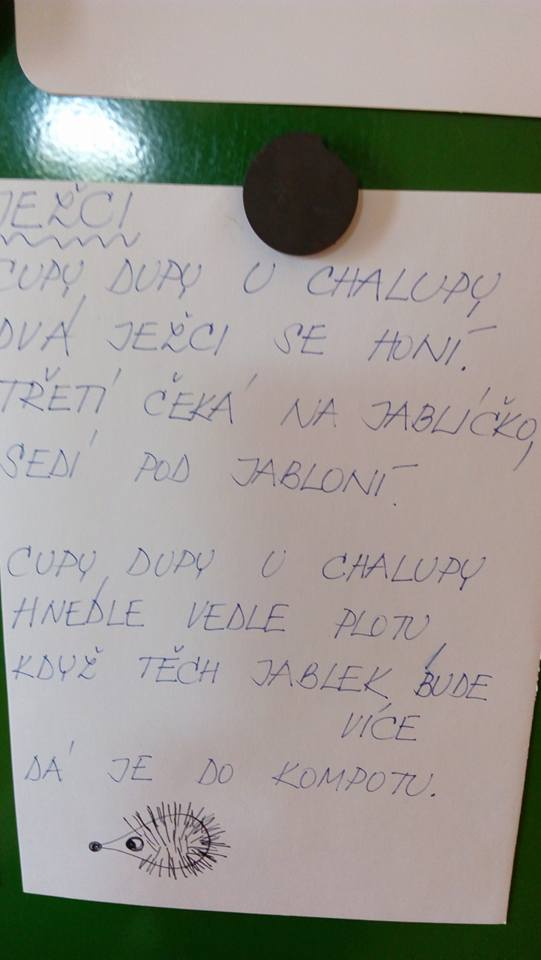 JEŽCI
CUPY, DUPY U CHALUPY,
DVA JEŽCI SE HONÍ.
TŘETÍ ČEKÁ NA JABLÍČKO,
SEDÍ POD JABLONÍ.
CUPY, DUPY U CHALUPY
HNEDLE VEDLE PLOTU,
KDYŽ TĚCH JABLEK BUDE
VÍCE
DÁ JE DO KOMPOTU.